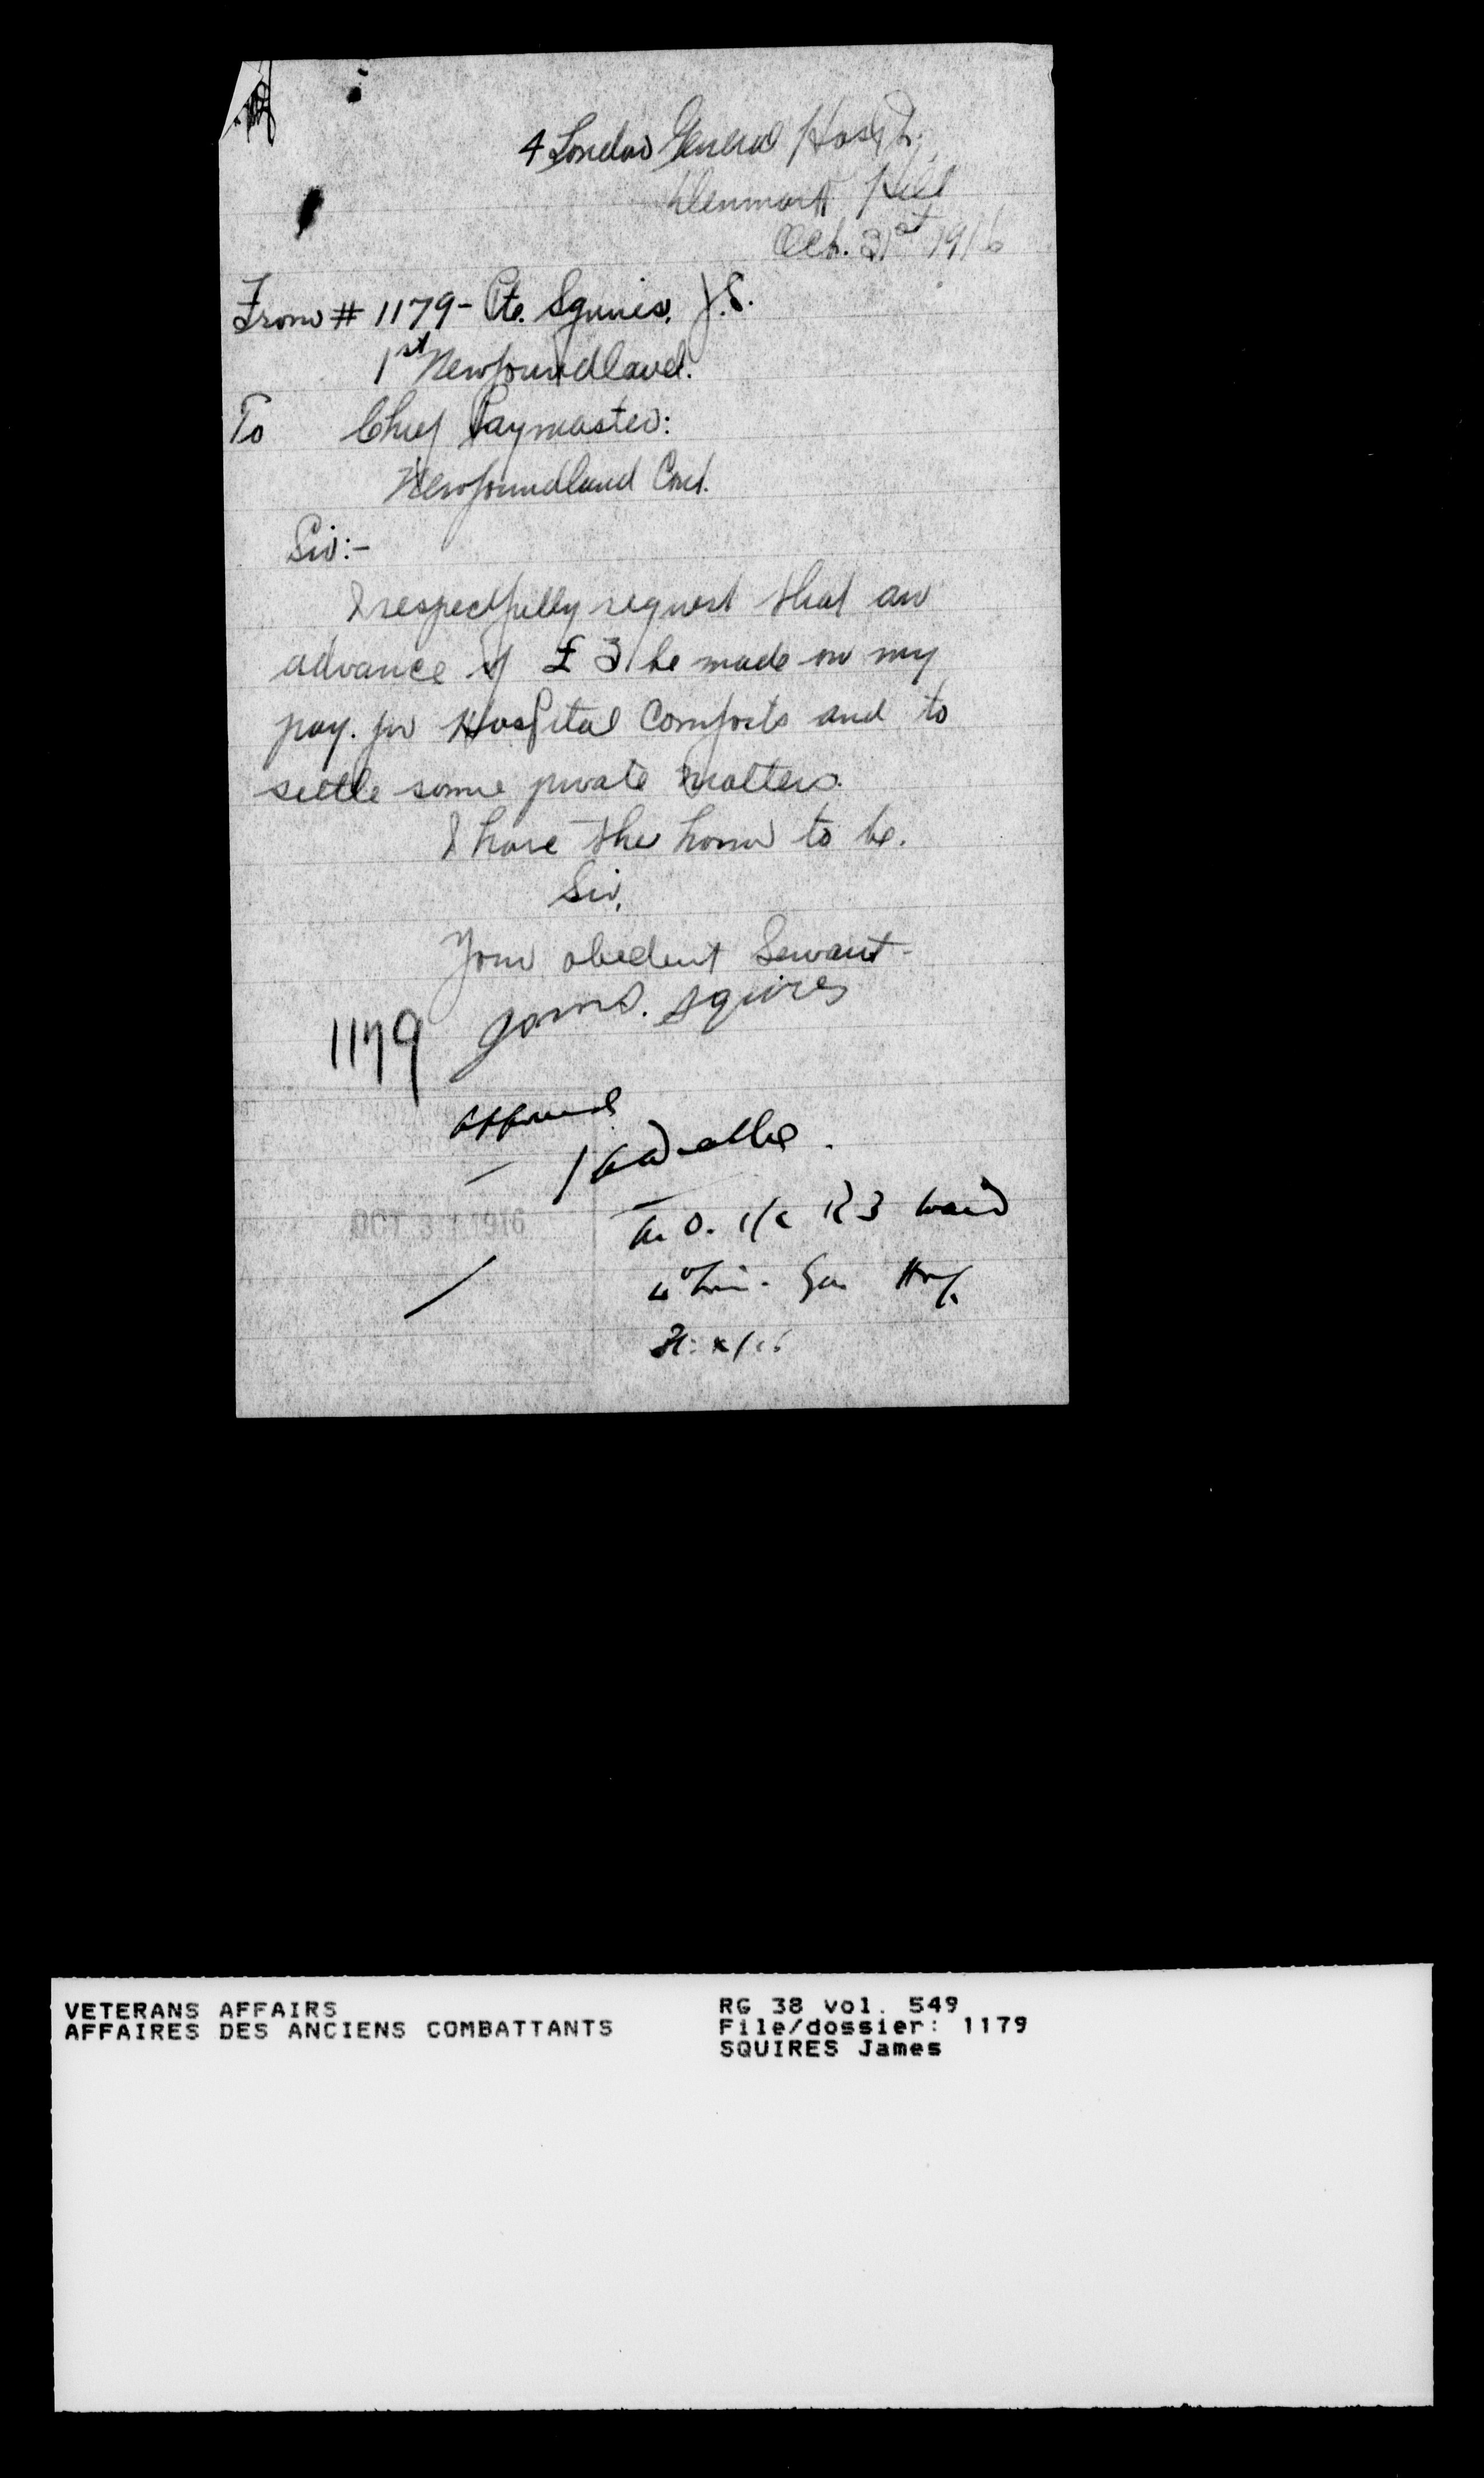 4 London General Hospt.
Denmark Hill
Oct. 31st 1916
From # 1179 - Pte. Squires, J.S.
1st Newfoundland.
To Chief Paymaster:
Newfoundland Cont.
Sir:-
I respectfully request that an
advance of £3 be made on my
pay. for Hospital Comforts and to
settle some private matters.
I have the honor to be.
Sir,
Your obedient Servant-
1179 Jams. Squires
Approved
M.O. i/c R3 Ward
4th Lon. Gen Hosp.
OCT 31 1916
31.x/16
VETERANS AFFAIRS
AFFAIRES DES ANCIENS COMBATTANTS
RG 38 vol. 549
File/dossier: 1179
SQUIRES James